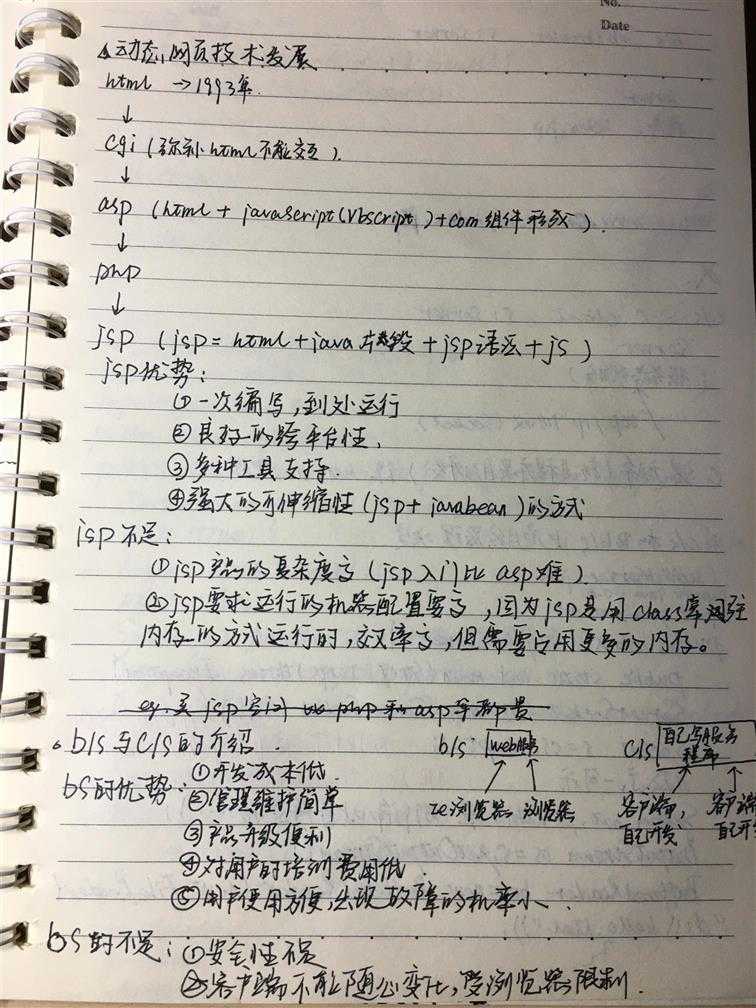 No.
Date
△动态网页技术发展
html →1993年.
↓
cgi (弥补html不能交互).
↓
asp (html + javascript(Vbscript)+com组件形成).
↓
php
↓
jsp (jsp = html+java片段+jsp语法+js)
jsp优势:
①一次编写,到处运行
②良好的跨平台性.
③多种工具支持.
④强大的可伸缩性(jsp+javabean)的方式
jsp不足:
①jsp产品的复杂度高(jsp入门比asp难).
②jsp要求运行的机器配置要高,因为jsp是用class常驻
内存的方式运行的,效率高,但需要占用更多的内存。
eg.买jsp空间 比php和asp等都贵
。b/s与c/s的介绍. b/s: web服务 c/s 自己写服务
程序
bs的优势: ①开发成本低.
②管理维护简单 ie浏览器 浏览器 客户端, 客户端
自己开发 自己开发
③产品升级便利
④对用户的培训费用低.
⑤用户使用方便,出现故障的机率小.
bs的不足: ①安全性不足
②客户端不能随心变化,受浏览器限制.